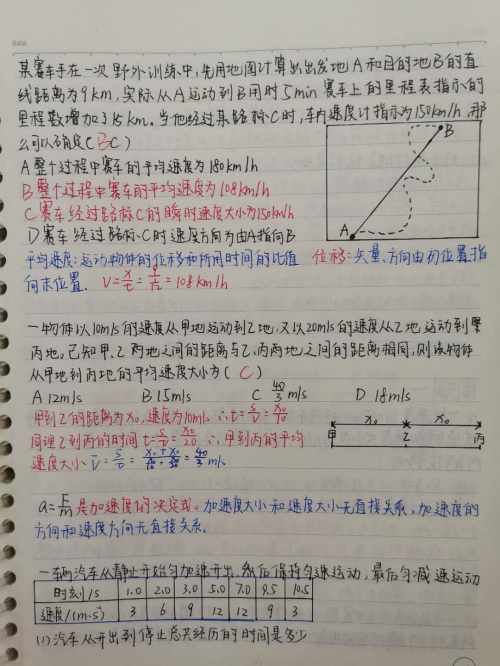 date:
某赛车手在一次野外训练中,先用地图计算出出发地A和目的地B的直
线距离为9km,实际从A运动到B用时5min赛车上的里程表指示的
里程数增加了15km.当他经过某路标C时,车内速度计指示为150km/h,那
么可以确定(BC)
A整个过程中赛车的平均速度为180km/h
B整个过程中赛车的平均速度为108km/h
C赛车经过路标C的瞬时速度大小为150km/h
D赛车经过路标C时速度方向为由A指向B
A
B
平均速度:运动物体的位移和所用时间的比值 位移:矢量.方向由初位置指
向末位置. V=x/t=9/(1/12)=108km/h
一物体以10m/s的速度从甲地运动到乙地,又以20m/s的速度从乙地运动到
丙地,已知甲、乙两地之间的距离与乙、丙两地之间的距离相同,则该物体
从甲地到丙地的平均速度大小为(C)
A 12m/s B 15m/s C 40/3 m/s D 18m/s
甲到乙的距离为x₀,速度为10m/s∴t=s/v=x₀/10
同理乙到丙的时间t=s/v=x₀/20 ∴甲到丙的平均
速度大小 V̄=s/t=(x₀+x₀)/(x₀/10+x₀/20)=40/3m/s
x₀ x₀
甲 乙 丙
a=F/m是加速度的决定式。加速度大小和速度大小无直接关系,加速度的
方向和速度方向无直接关系。
一辆汽车从静止开始匀加速开出,然后保持匀速运动,最后匀减速运动
时刻/s 1.0 2.0 3.0 5.0 7.0 9.5 10.5
速度/(m·s⁻¹) 3 6 9 12 12 9 3
(1)汽车从开出到停止总共经历的时间是多少